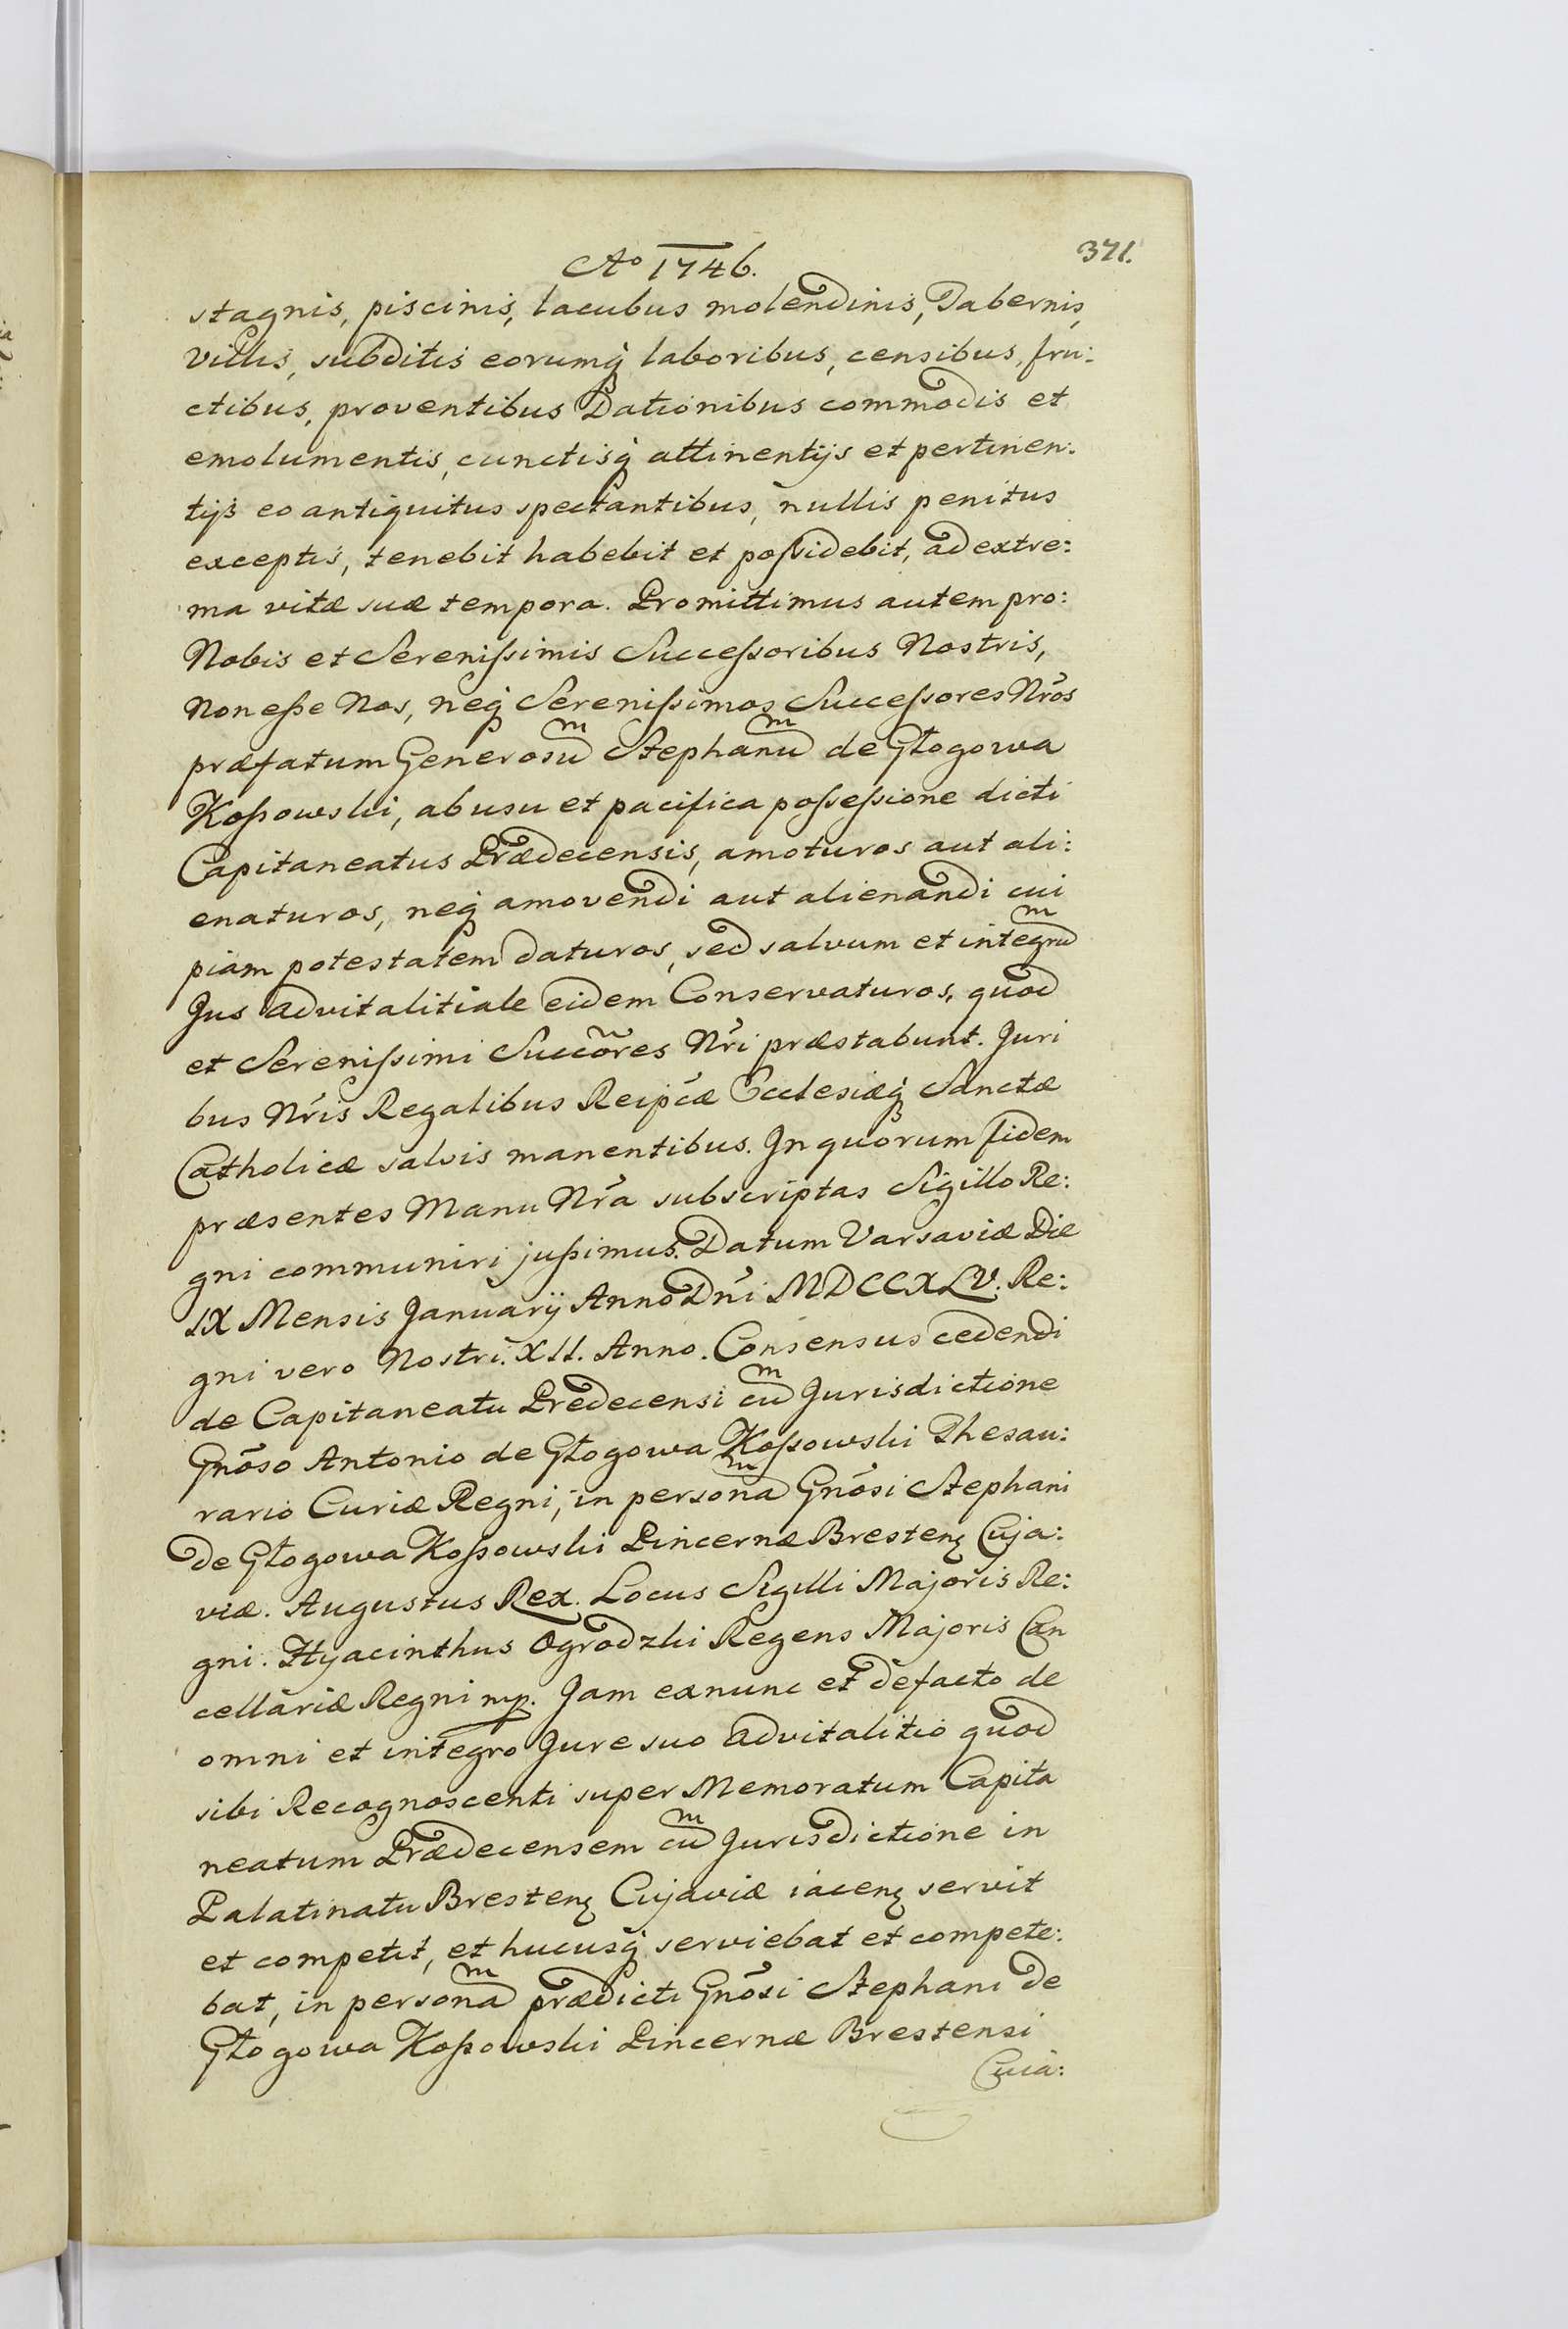 Ao 1746.
371.
stagnis, piscinis, lacubus molendinis, Tabernis,
Villis, subditis eorumq́ laboribus, censibus, fru:
ctibus, proventibus Dationibus commodis et
emolumentis, cunctisq́ attinentijs et pertinen:
tijs eo antiquitus spectantibus, nullis penitus
exceptis, tenebit habebit et poſsidebit, ad extre:
ma vitæ suæ tempora. Promittimus autem pro:
Nobis et Sereniſsimis Succeſsoribus Nostris,
Non eſse Nos, neq́ Sereniſsimos Succeſsores Nr̃os
præfatum Generosum̃ Stephanum̃ de Głogowa
Koſsowski, ab usu et pacifica poſseſsione dicti
Capitaneatus Prædecensis, amoturos aut ali:
enaturos, neq́ amovendi aut alienandi cui
piam potestatem daturos, sed salvum et integrum̃
Jus advitalitiale eidem Conservaturos, quod
et Sereniſsimi Succõres Nr̃i præstabunt. Juri
bus Nr̃is Regalibus Reipćæ Ecclesiæq́ Sanctæ
Catholicæ salvis manentibus. In quorum fidem
præsentes Manu Nr̃a subscriptas Sigillo Re:
gni communiri juſsimus. Datum Varsaviæ Die
IX Mensis Januarij Anno Dñi MDCCXLV. Re:
gni vero Nostri. XII. Anno. Consensus cedendi
de Capitaneatu Predecensi cum̃ Jurisdictione
Gnõso Antonio de Głogowa Koſsowski Thesau:
rario Curiæ Regni, in personam̃ Gnõsi Stephani
de Głogowa Koſsowski Pincernæ Bresteng Cuja:
viæ. Augustus Rex. Locus Sigilli Majoris Re:
gni. Hyacinthus Ogrodzki Regens Majoris Can
cellariæ Regni mp. Jam exnunc et defacto de
omni et integro Jure suo advitalitio quod
sibi Recognoscenti super Memoratum Capita
neatum Prædecensem cum̃ Jurisdictione in
Palatinatu Bresteng Cujaviæ iaceng servit
et competit, et hucusq́ serviebat et compete:
bat, in personam̃ prædicti Gnõsi Stephani de
Głogowa Koſsowski Pincernæ Brestensi
Cuia: